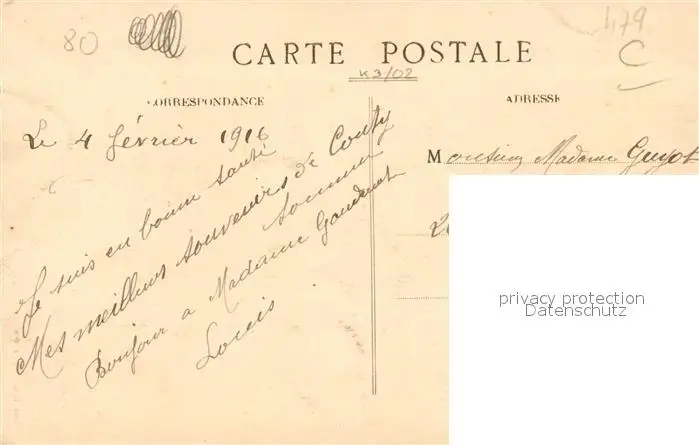 80
479
C
CARTE POSTALE
K3/02
CORRESPONDANCE
ADRESSE
Le 4 février 1916
Je suis en bonne santé
Mes meilleurs souvenirs de Conty
Somme
Bonjour a Madame Gaudinot
Louis
Monsieur Madame Guyot
privacy protection
Datenschutz